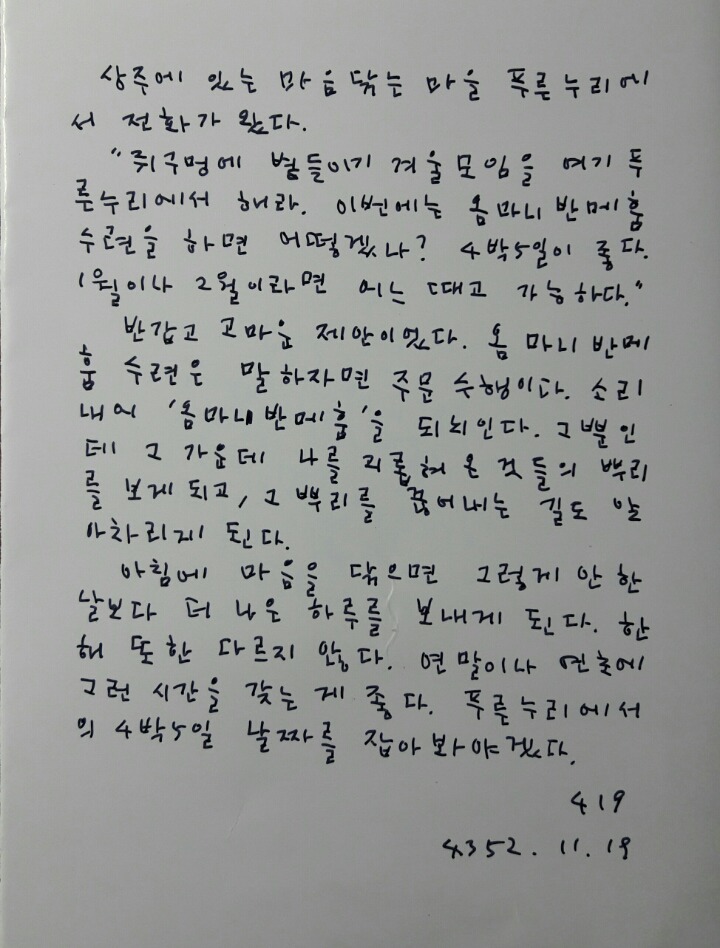 상주에 있는 마음닦는 마을 푸른누리에
서 전화가 왔다.
"쥐구멍에 볕들이기 겨울모임을 여기 푸
른누리에서 해라. 이번에는 옴마니반메훔
수련을 하면 어떻겠나? 4박5일이 좋다.
1월이나 2월이라면 어느 때고 가능하다."
반갑고 고마운 제안이었다. 옴 마니 반메
훔 수련은 말하자면 주문 수행이다. 소리
내어 '옴마니반메훔'을 되뇌인다. 그뿐인
데 그 가운데 나를 괴롭혀 온 것들의 뿌리
를 보게 되고, 그 뿌리를 끊어내는 길도 알
아차리게 된다.
아침에 마음을 닦으면 그렇게 안 한
날보다 더 나은 하루를 보내게 된다. 한
해 또한 다르지 않다. 연말이나 연초에
그런 시간을 갖는 게 좋다. 푸른누리에서
의 4박5일 날짜를 잡아봐야겠다.
419
4352. 11. 19